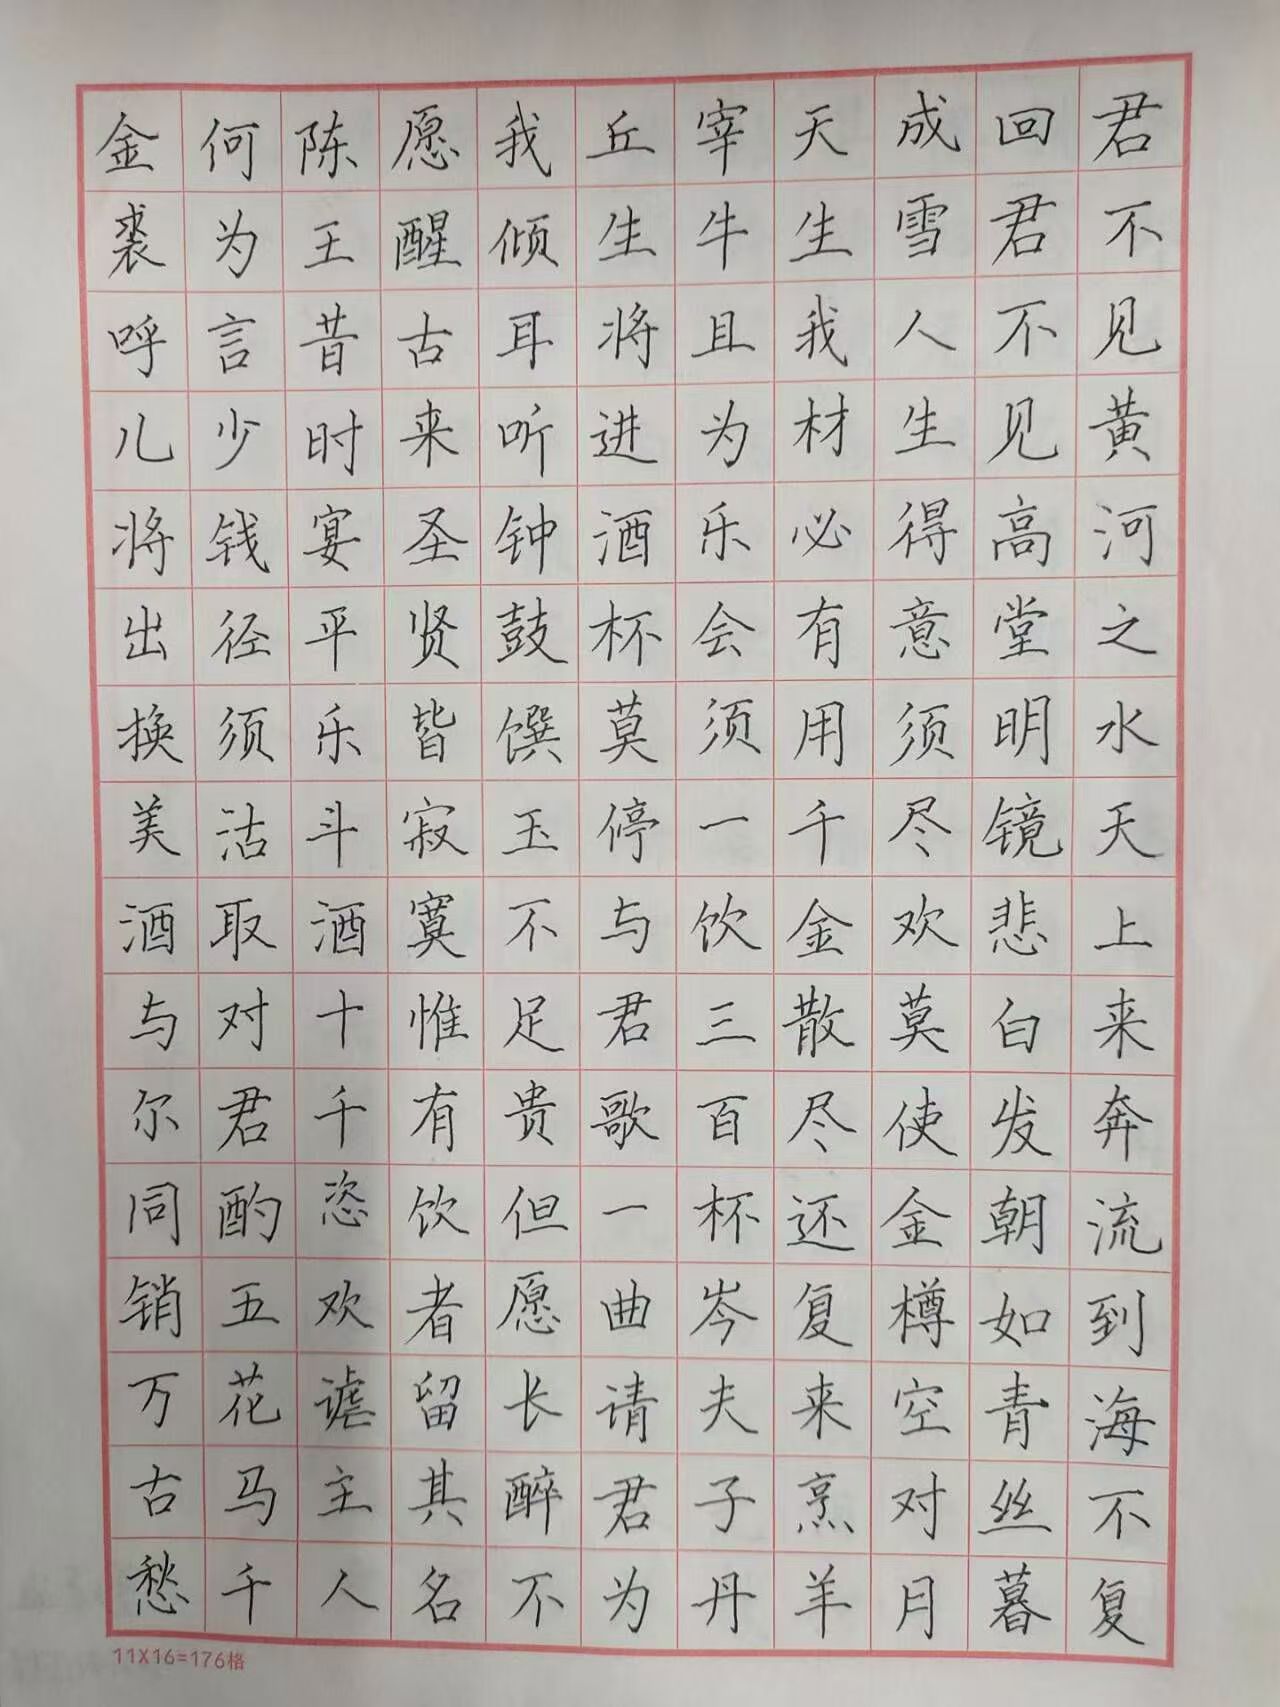 君不见黄河之水天上来奔流到海不复
回君不见高堂明镜悲白发朝如青丝暮
成雪人生得意须尽欢莫使金樽空对月
天生我材必有用千金散尽还复来烹羊
宰牛且为乐会须一饮三百杯岑夫子丹
丘生将进酒杯莫停与君歌一曲请君为
我倾耳听钟鼓馔玉不足贵但愿长醉不
愿醒古来圣贤皆寂寞惟有饮者留其名
陈王昔时宴平乐斗酒十千恣欢谑主人
何为言少钱径须沽取对君酌五花马千
金裘呼儿将出换美酒与尔同销万古愁
11X16=176格